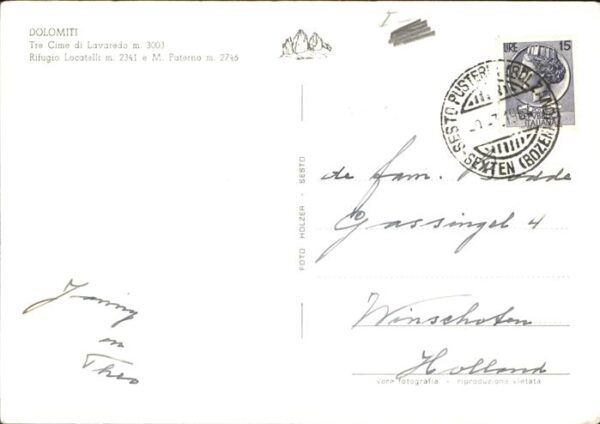 DOLOMITI
Tre Cime di Lavaredo m. 3003
Rifugio Locatelli m. 2341 e M. Paterno m. 2746
I-
LIRE 15
SESTO PUSTERIA (BOLZANO)
SEXTEN (BOZEN)
ITALIANA
FOTO HOLZER - SESTO
de fam.
Gassingel 4
Winschoten
Holland
en
Theo
vera fotografia - riproduzione vietata